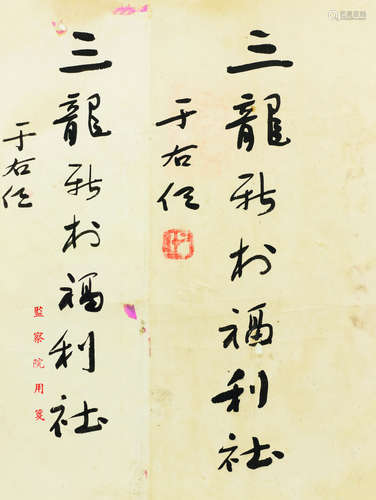 三龍新村福利社
于右任
三龍新村福利社
于右任
監察院用箋